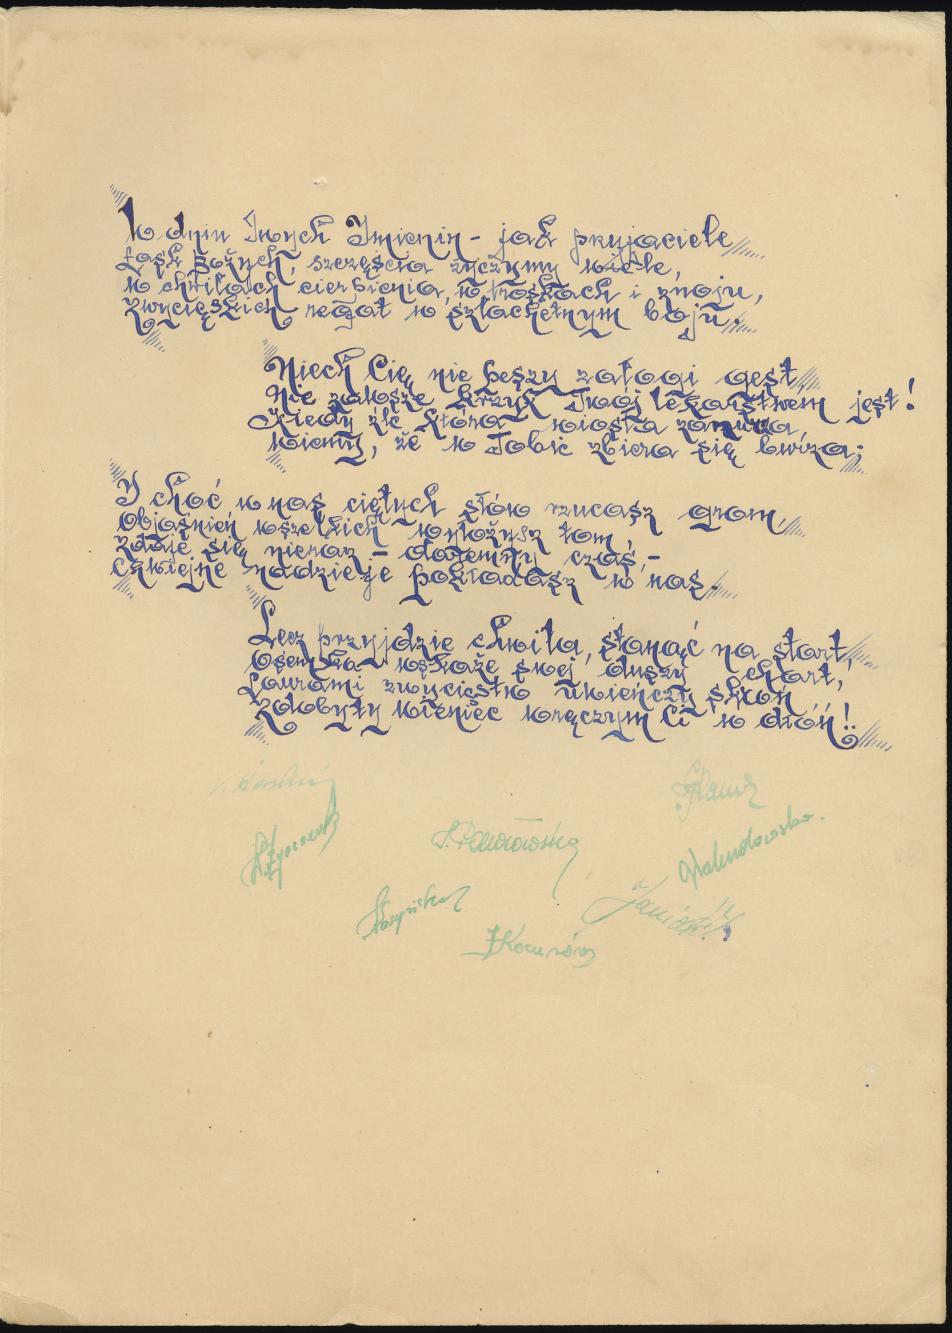 W dniu Twych Imienin - jak przyjaciele
Łask Bożych, szczęścia życzymy wiele,
w chwilach cierpienia, w troskach i znoju,
Zwycięskich regat w szlachetnym boju.
Niech Cię nie peszy załogi gest,
Nie zawsze krzyk Twój lekarstwem jest!
Kiedy źle która wiosła zanurza,
wiemy, że w Tobie zbiera się burza;
I choć w nas ciętych słów rzucasz grom,
Objaśnień wszelkich wyłożysz tom,
zdaje się nieraz - daremny czas, -
Chwiejne nadzieje pokładasz w nas.
Lecz przyjdzie chwila, stanąć na start,
Ósemka wskaże swej duszy chart,
Laurami zwycięstw uwieńczy skroń
Zdobyty wieniec wręczym Ci w dłoń!
JKocurówn